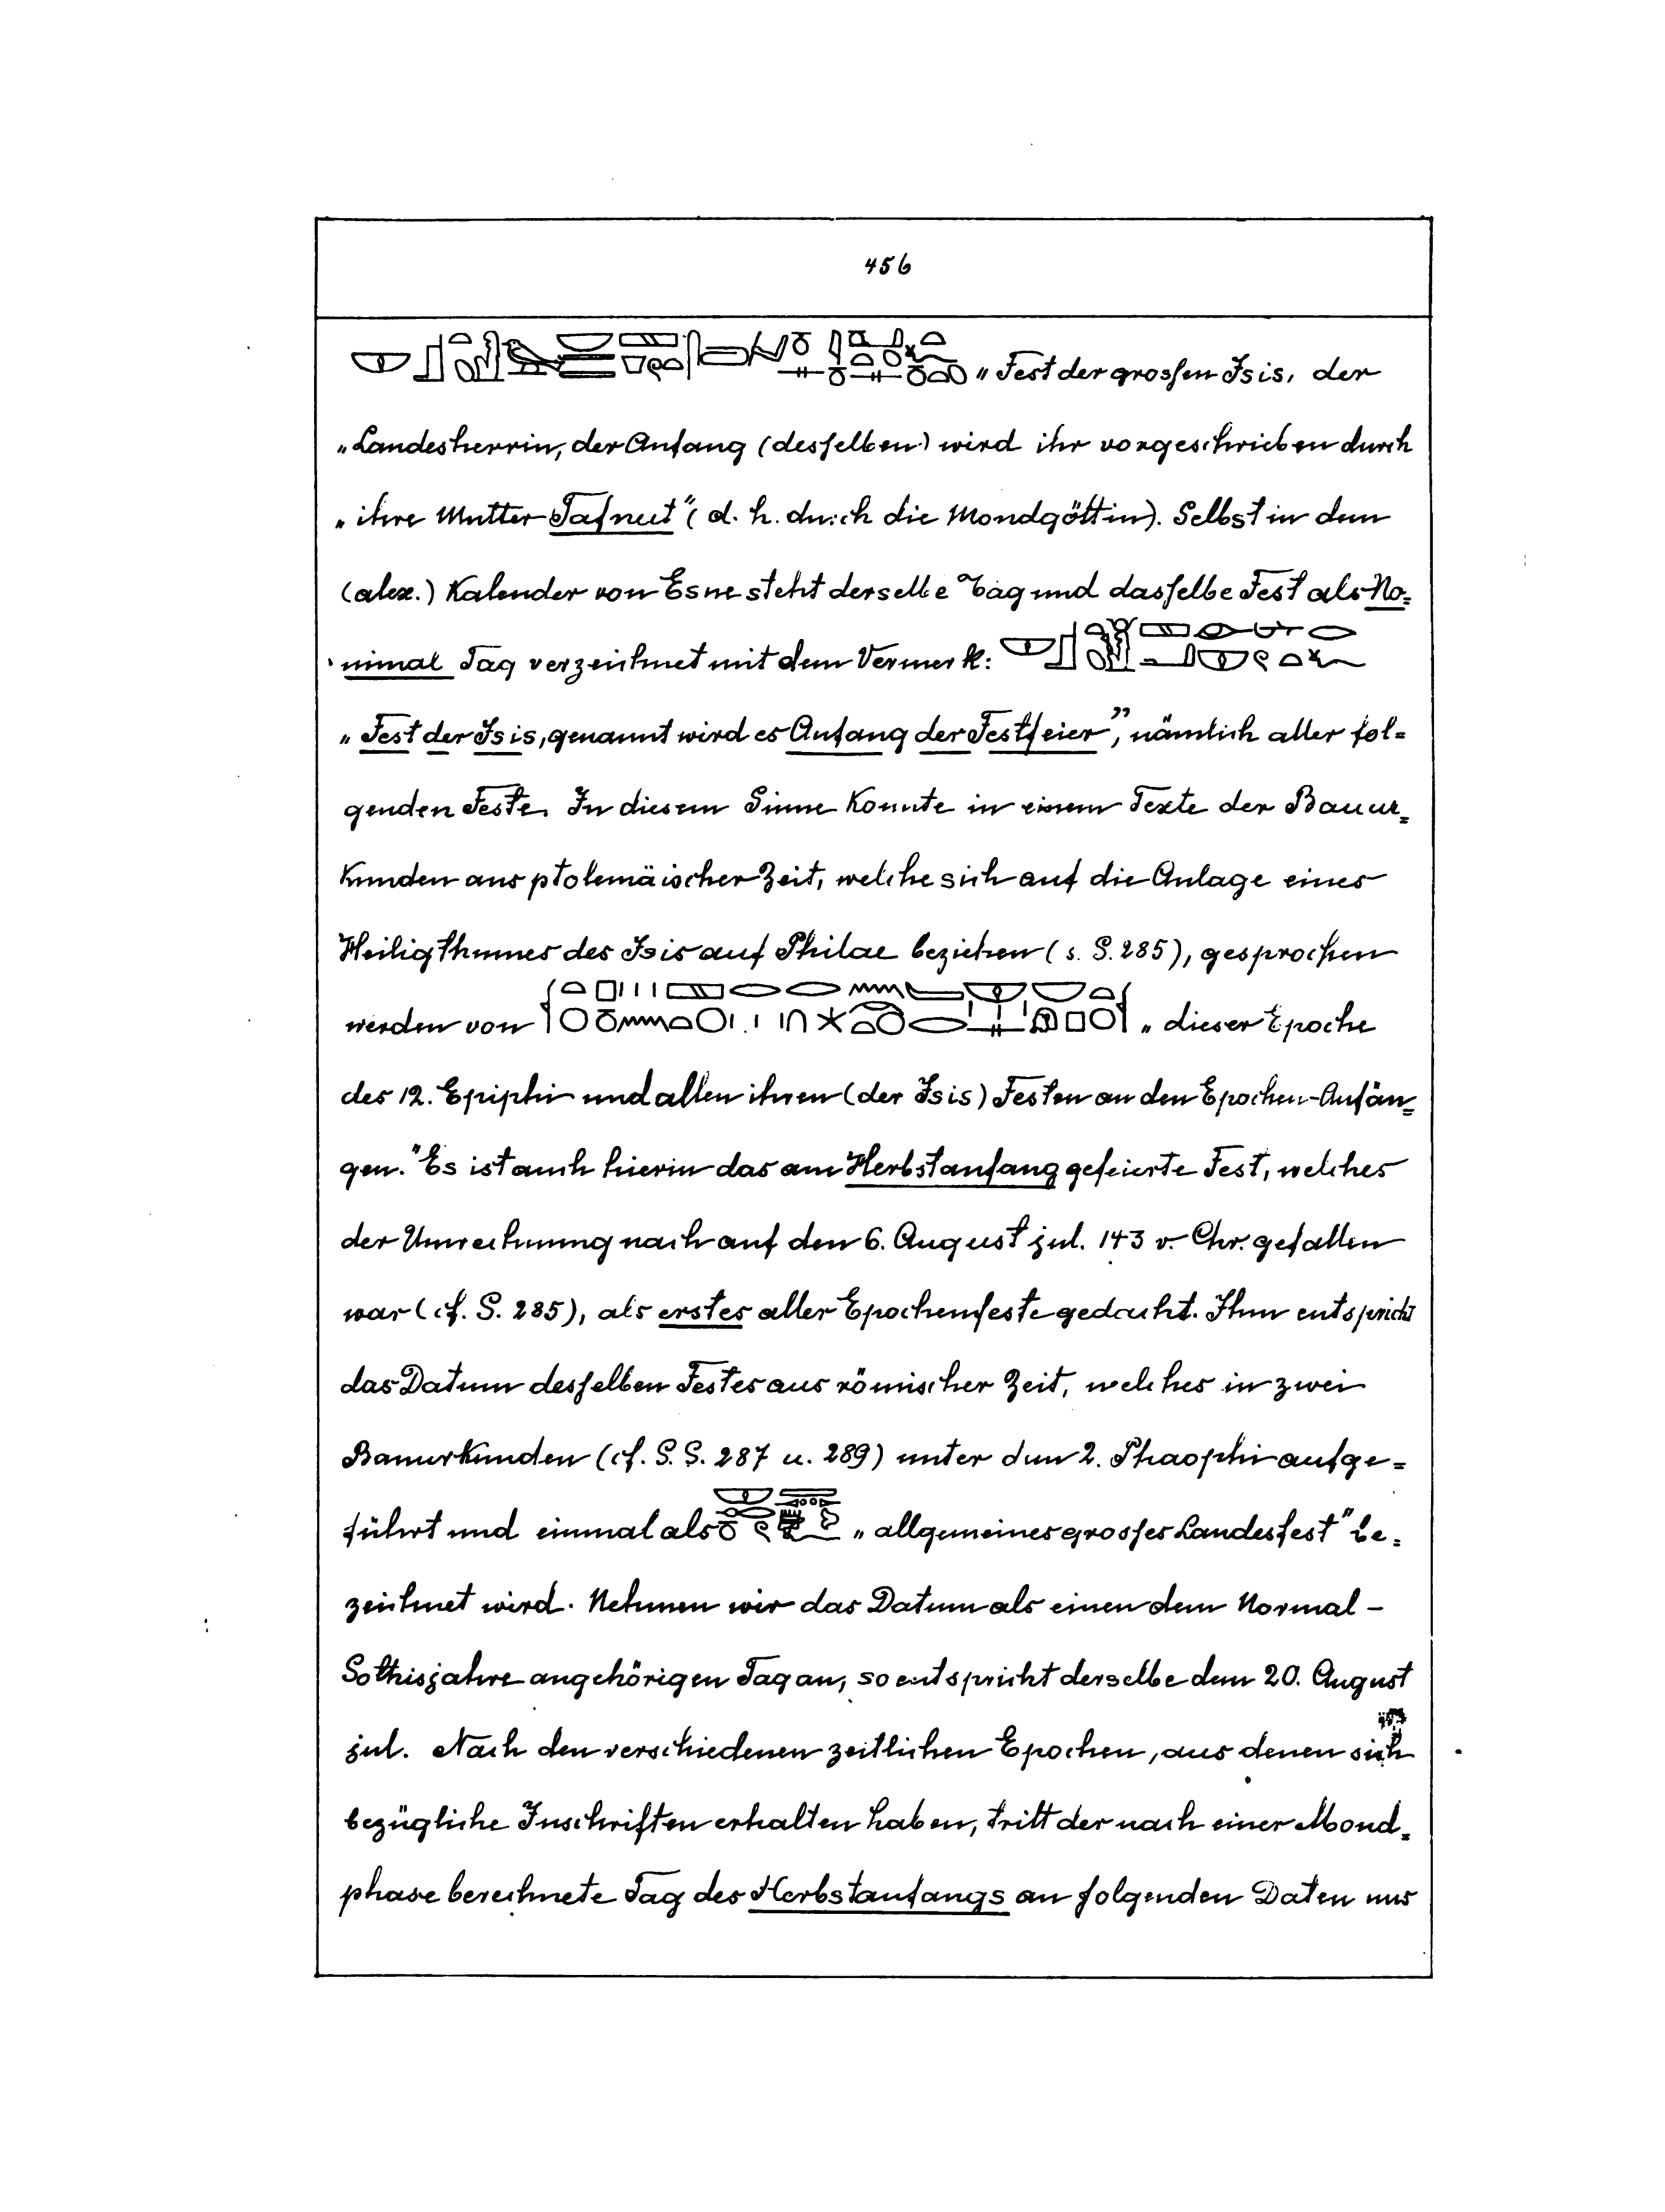 456
„Fest der grossen Isis, der
„Landesherrin, der Anfang (desselben) wird ihr vorgeschrieben durch
„ihre Mutter Tafnut“ (d. h. durch die Mondgöttin). Selbst in dem
(alex.) Kalender von Esne steht derselbe Tag und dasselbe Fest als No-
minal Tag verzeichnet mit dem Vermerk:
„Fest der Isis, genannt wird es Anfang der Festfeier”, nämlich aller fol-
genden Feste. In diesem Sinne konnte in einem Texte der Bauur-
kunden aus ptolemäischer Zeit, welche sich auf die Anlage eines
Heiligthumes des Isis auf Philae beziehen (s. S. 285), gesprochen
werden von „dieser Epoche
des 12. Epiphi und allen ihren (der Isis) Festen an den Epochen-Anfän-
gen.“ Es ist auch hierin das am Herbstanfang gefeierte Fest, welches
der Umrechnung nach auf den 6. August jul. 143 v. Chr. gefallen
war (cf. S. 285), als erstes aller Epochenfeste gedacht. Ihm entspricht
das Datum desselben Festes aus römischer Zeit, welches in zwei
Bauurkunden (cf. S. S. 287 u. 289) unter dem 2. Phaophi aufge-
führt und einmal als „allgemeines grosses Landesfest“ be-
zeichnet wird. Nehmen wir das Datum als einen dem Normal-
Sothisjahre angehörigen Tag an, so entspricht derselbe dem 20. August
jul. Nach den verschiedenen zeitlichen Epochen, aus denen sich
bezügliche Inschriften erhalten haben, tritt der nach einer Mond-
phase berechnete Tag des Herbstanfangs an folgenden Daten uns